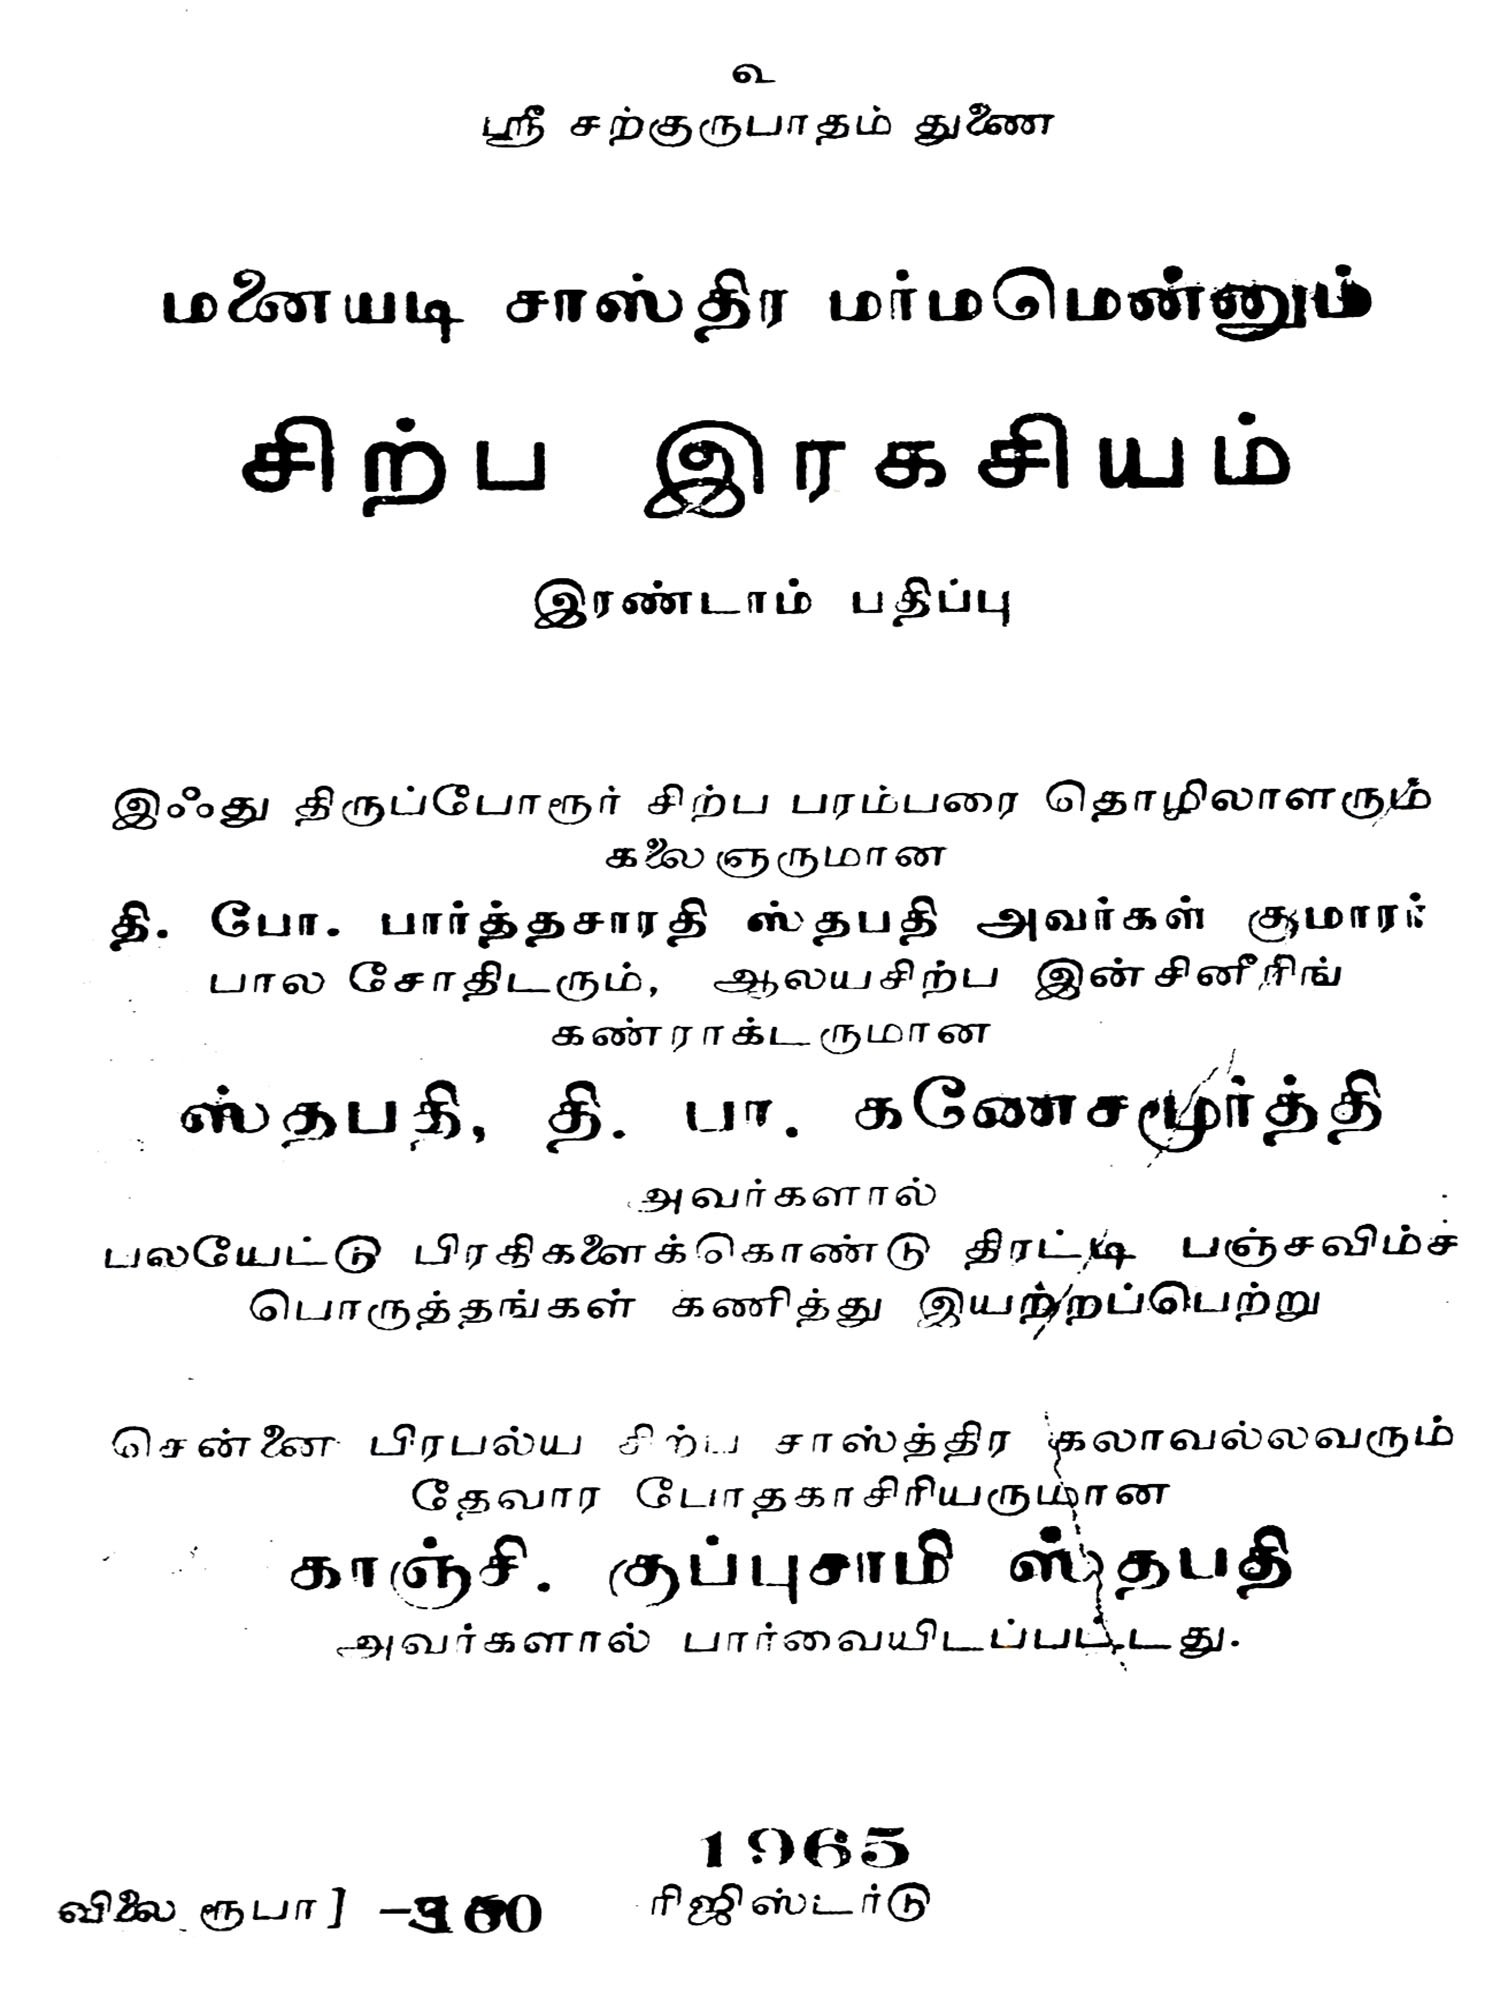 உ
ஸ்ரீ சற்குருபாதம் துணை
மனையடி சாஸ்திர மர்மமென்னும்
சிற்ப இரகசியம்
இரண்டாம் பதிப்பு
இஃது திருப்போரூர் சிற்ப பரம்பரை தொழிலாளரும்
கலைஞருமான
தி. போ. பார்த்தசாரதி ஸ்தபதி அவர்கள் குமாரர்
பால சோதிடரும், ஆலயசிற்ப இன்சினீரிங்
கண்ராக்டருமான
ஸ்தபதி, தி. பா. கணேசமூர்த்தி
அவர்களால்
பலயேட்டு பிரதிகளைக்கொண்டு திரட்டி பஞ்சவிம்ச
பொருத்தங்கள் கணித்து இயற்றப்பெற்று
சென்னை பிரபல்ய சிற்ப சாஸ்த்திர கலாவல்லவரும்
தேவார போதகாசிரியருமான
காஞ்சி. குப்புசாமி ஸ்தபதி
அவர்களால் பார்வையிடப்பட்டது.
1965
விலை ரூபா]
ரிஜிஸ்டர்டு